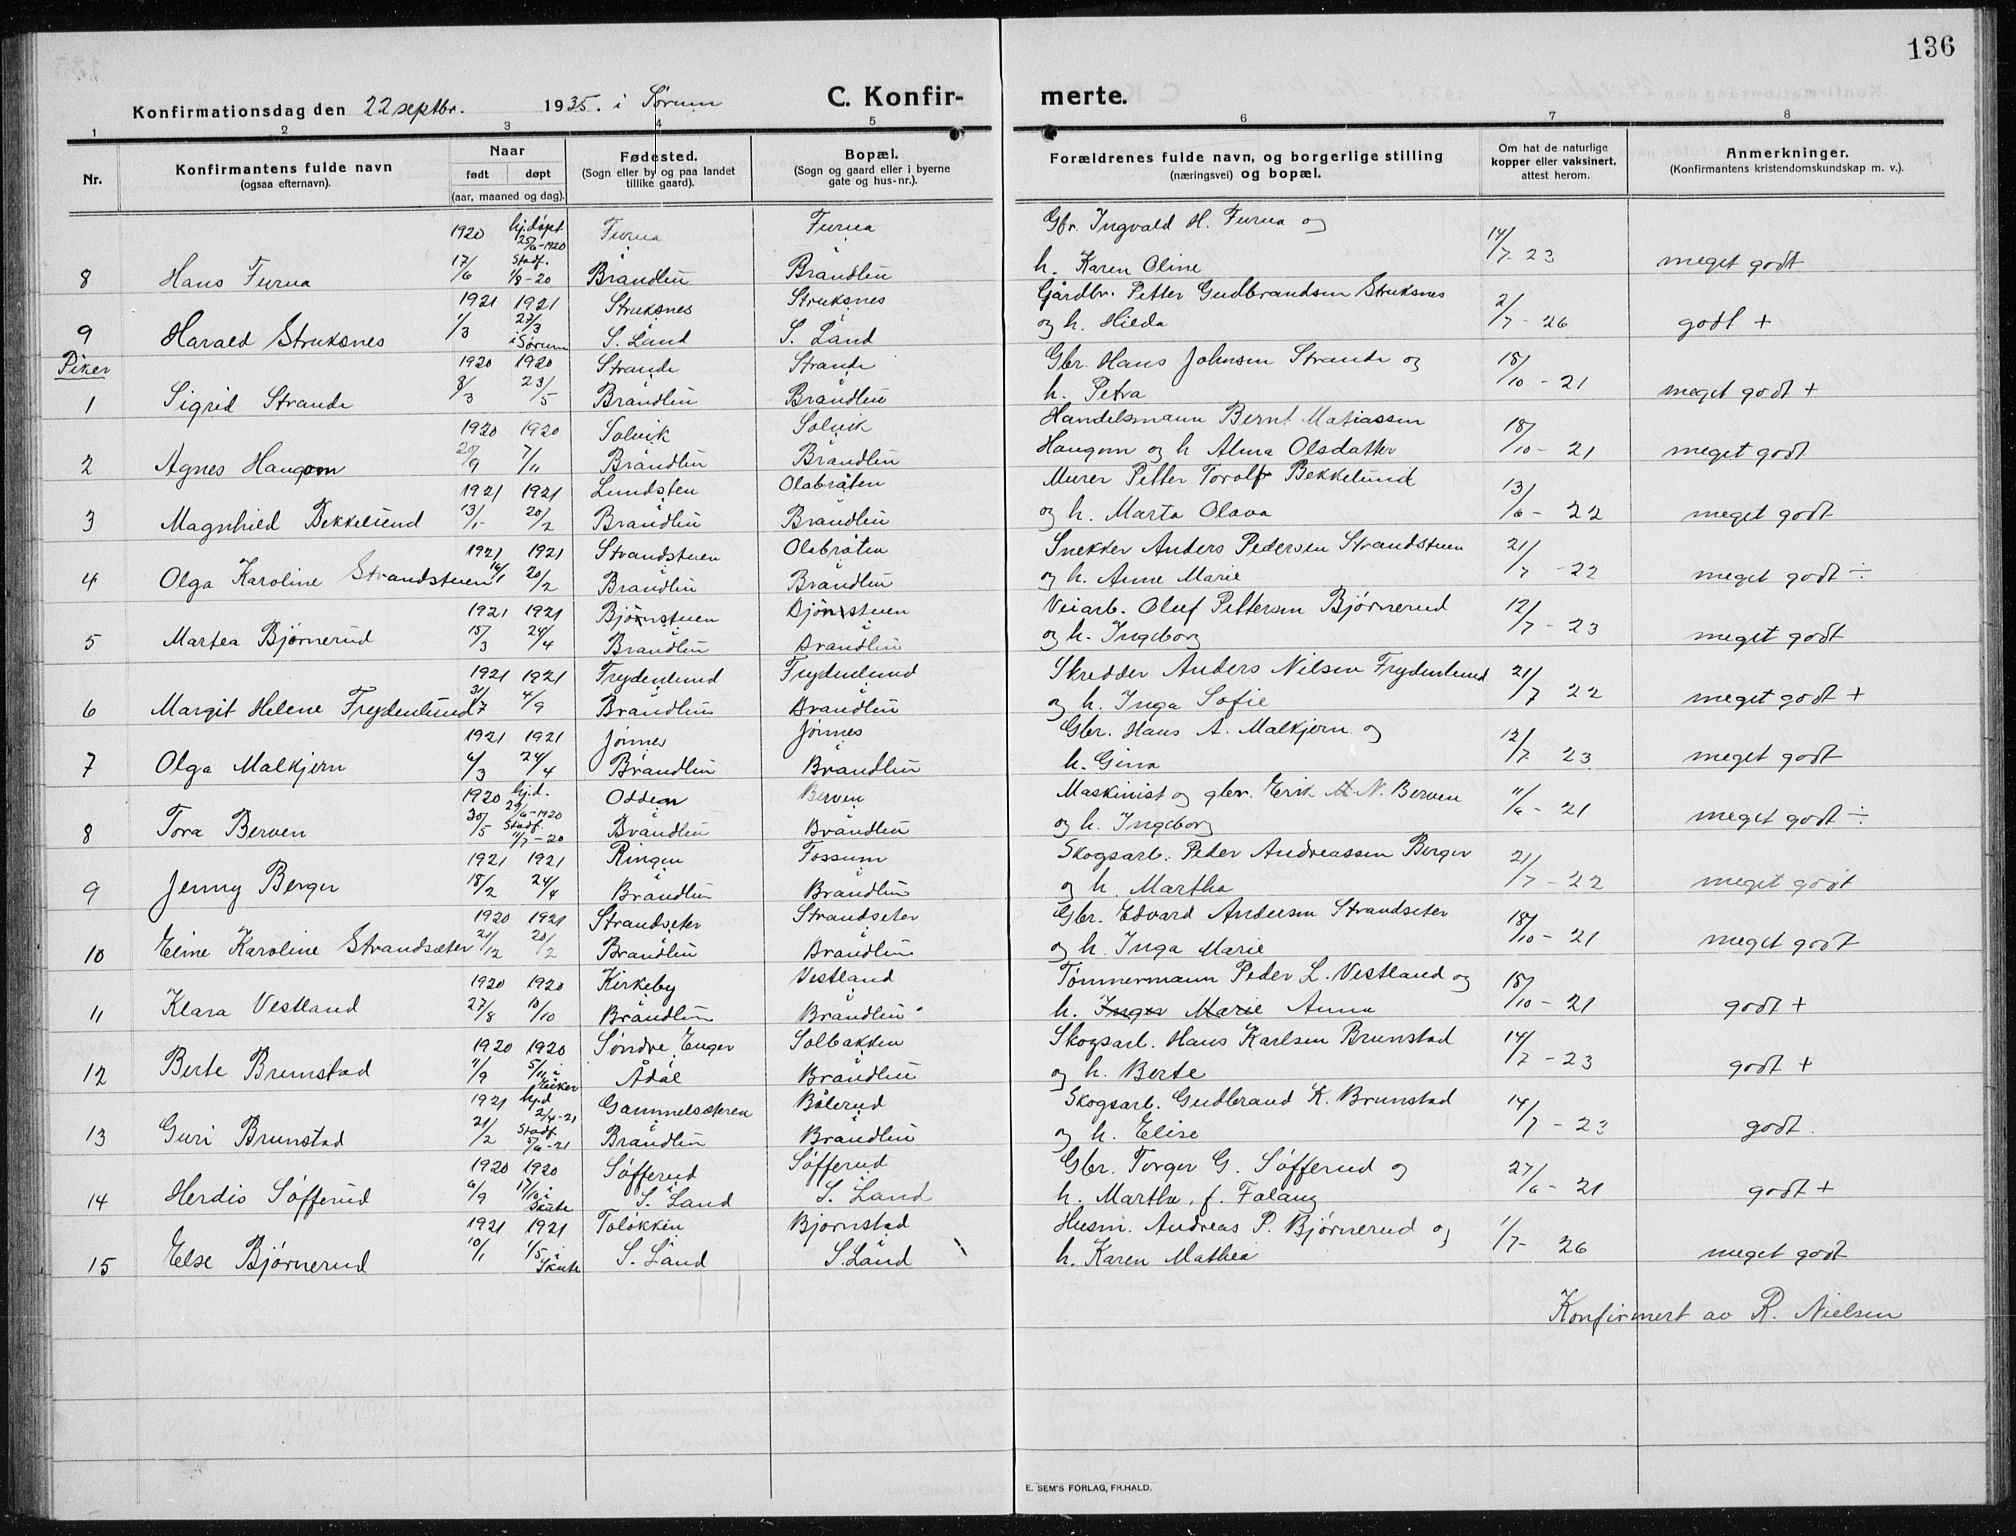 136
Konfirmationsdag den 22 septbr. 1935. i Sørum
C. Konfirmerte.
1 2 3 4 5 6 7 8
Nr.
Konfirmantens fulde navn
(ogsaa efternavn).
Naar
født døpt
(aar, maaned og dag).
Fødested.
(Sogn eller by og paa landet
tillike gaard).
Bopæl.
(Sogn og gaard eller i byerne
gate og hus-nr.).
Forældrenes fulde navn, og borgerlige stilling
(næringsvei) og bopæl.
Om hat de naturlige
kopper eller vaksinert,
attest herom.
Anmerkninger.
(Konfirmantens kristendomskundskap m. v.).
1920 hj.døpt 25/6-1920 Furua Furua Gbr. Ingvald H. Furua og 14/7 23
8 Hans Furua 17/6 Stadf. 1/8-20 Brandbu Brandbu h. Karen Oline meget godt
1921 1921 Struksnes Struksnes Gårdbr. Petter Gudbrandsen Struksnes 2/7-26
9 Harald Struksnes 1/3 27/3 i Sørum S. Land S. Land og h. Hilda godt +
Piker
1920 1920 Strande Strande Gbr. Hans Johnsen Strande og 18/10-21
1 Sigrid Strande 8/3 23/5 Brandbu Brandbu h. Petra meget godt +
1920 1920 Solvik Solvik Handelsmann Bernt Matiassen 18/10-21
2 Agnes Haugom 20/9 7/11 Brandbu Brandbu Haugom og h Alma Olsdatter meget godt
1921 1921 Lundsten Olabråten Murer Petter Torolf Bekkelund 13/6-22
3 Magnhild Bekkelund 13/1- 20/2 Brandbu Brandbu og h. Marta Olava meget godt
1921 1921 Strandstuen Olabråten Snekker Anders Pedersen Strandstuen 21/7-22
4 Olga Karoline Strandstuen 16/1 20/2 Brandbu Brandbu og h. Anne Marie meget godt ÷
1921 1921 Bjønstuen Bjønstuen Veiarb. Oluf Pettersen Bjørnerud 12/7-23
5 Martea Bjørnerud 15/3 24/4 Brandbu Brandbu og h. Ingeborg meget godt
1921 1921 Frydenlund Frydenlund Skredder Anders Nilsen Frydenlund 21/7 22
6 Margit Helene Frydenlund 31/7 4/9 Brandbu Brandbu og h. Inga Sofie meget godt +
1921 1921 Jønnes Jønnes Gbr. Hans A. Malkjern og 12/7 23
7 Olga Malkjern 6/3 24/4 Brandbu Brandbu h. Gina meget godt
1920 hj.d. Odden Berven Maskinist og gbr. Erik N. Berven 11/6-21
8 Tora Berven 30/5 Stadf. 11/7-20 Brandbu Brandbu og h. Ingeborg meget godt ÷
1921 1921 Ringen Fossum Skogsarb. Peder Andreassen Berger 21/7-22
9 Jenny Berger 18/2 24/4 Brandbu Brandbu og h. Martha meget godt
1920 1921 Strandseter Strandseter Gbr. Edvard Andersen Strandseter 18/10-21
10 Eline Karoline Strandsæter 21/12 20/2 Brandbu Brandbu og h. Inga Marie meget godt
1920 1920 Kirkeby Vestland Tømmermann Peder L. Vestland og 18/10-21
11 Klara Vestland 27/8 10/10 Brandbu Brandbu h. Inger Marie Anna godt +
1920 1920 Søndre Enger Solbakken Skogsarb. Hans Karlsen Brunstad 14/7-23
12 Berte Brunstad 7/9 5/11 i Eiker Ådal Brandbu og h. Berte godt +
1921 hj.d 2/4-21 Gammelsæteren Bålerud Skogsarb. Gudbrand K. Brunstad 14/7-23
13 Guri Brunstad 21/2 Stadf. 5/6-21 Brandbu Brandbu og h. Elise godt.
1920 1920 Søfferud Søfferud Gbr. Torger G. Søfferud og 27/6-21
14 Herdis Søfferud 6/9 17/10 i Skute S. Land S. Land h. Martha f. Falang godt +
1921 1921 Toløkken Bjørnstad Husm. Andreas P. Bjørnerud og 1/7- 26
15 Else Bjørnerud 10/1 1/5 i Skute S. Land S. Land h. Karen Mathea meget godt
Konfirmert av R. Nielsen
E. SEM'S FORLAG, FR.HALD.